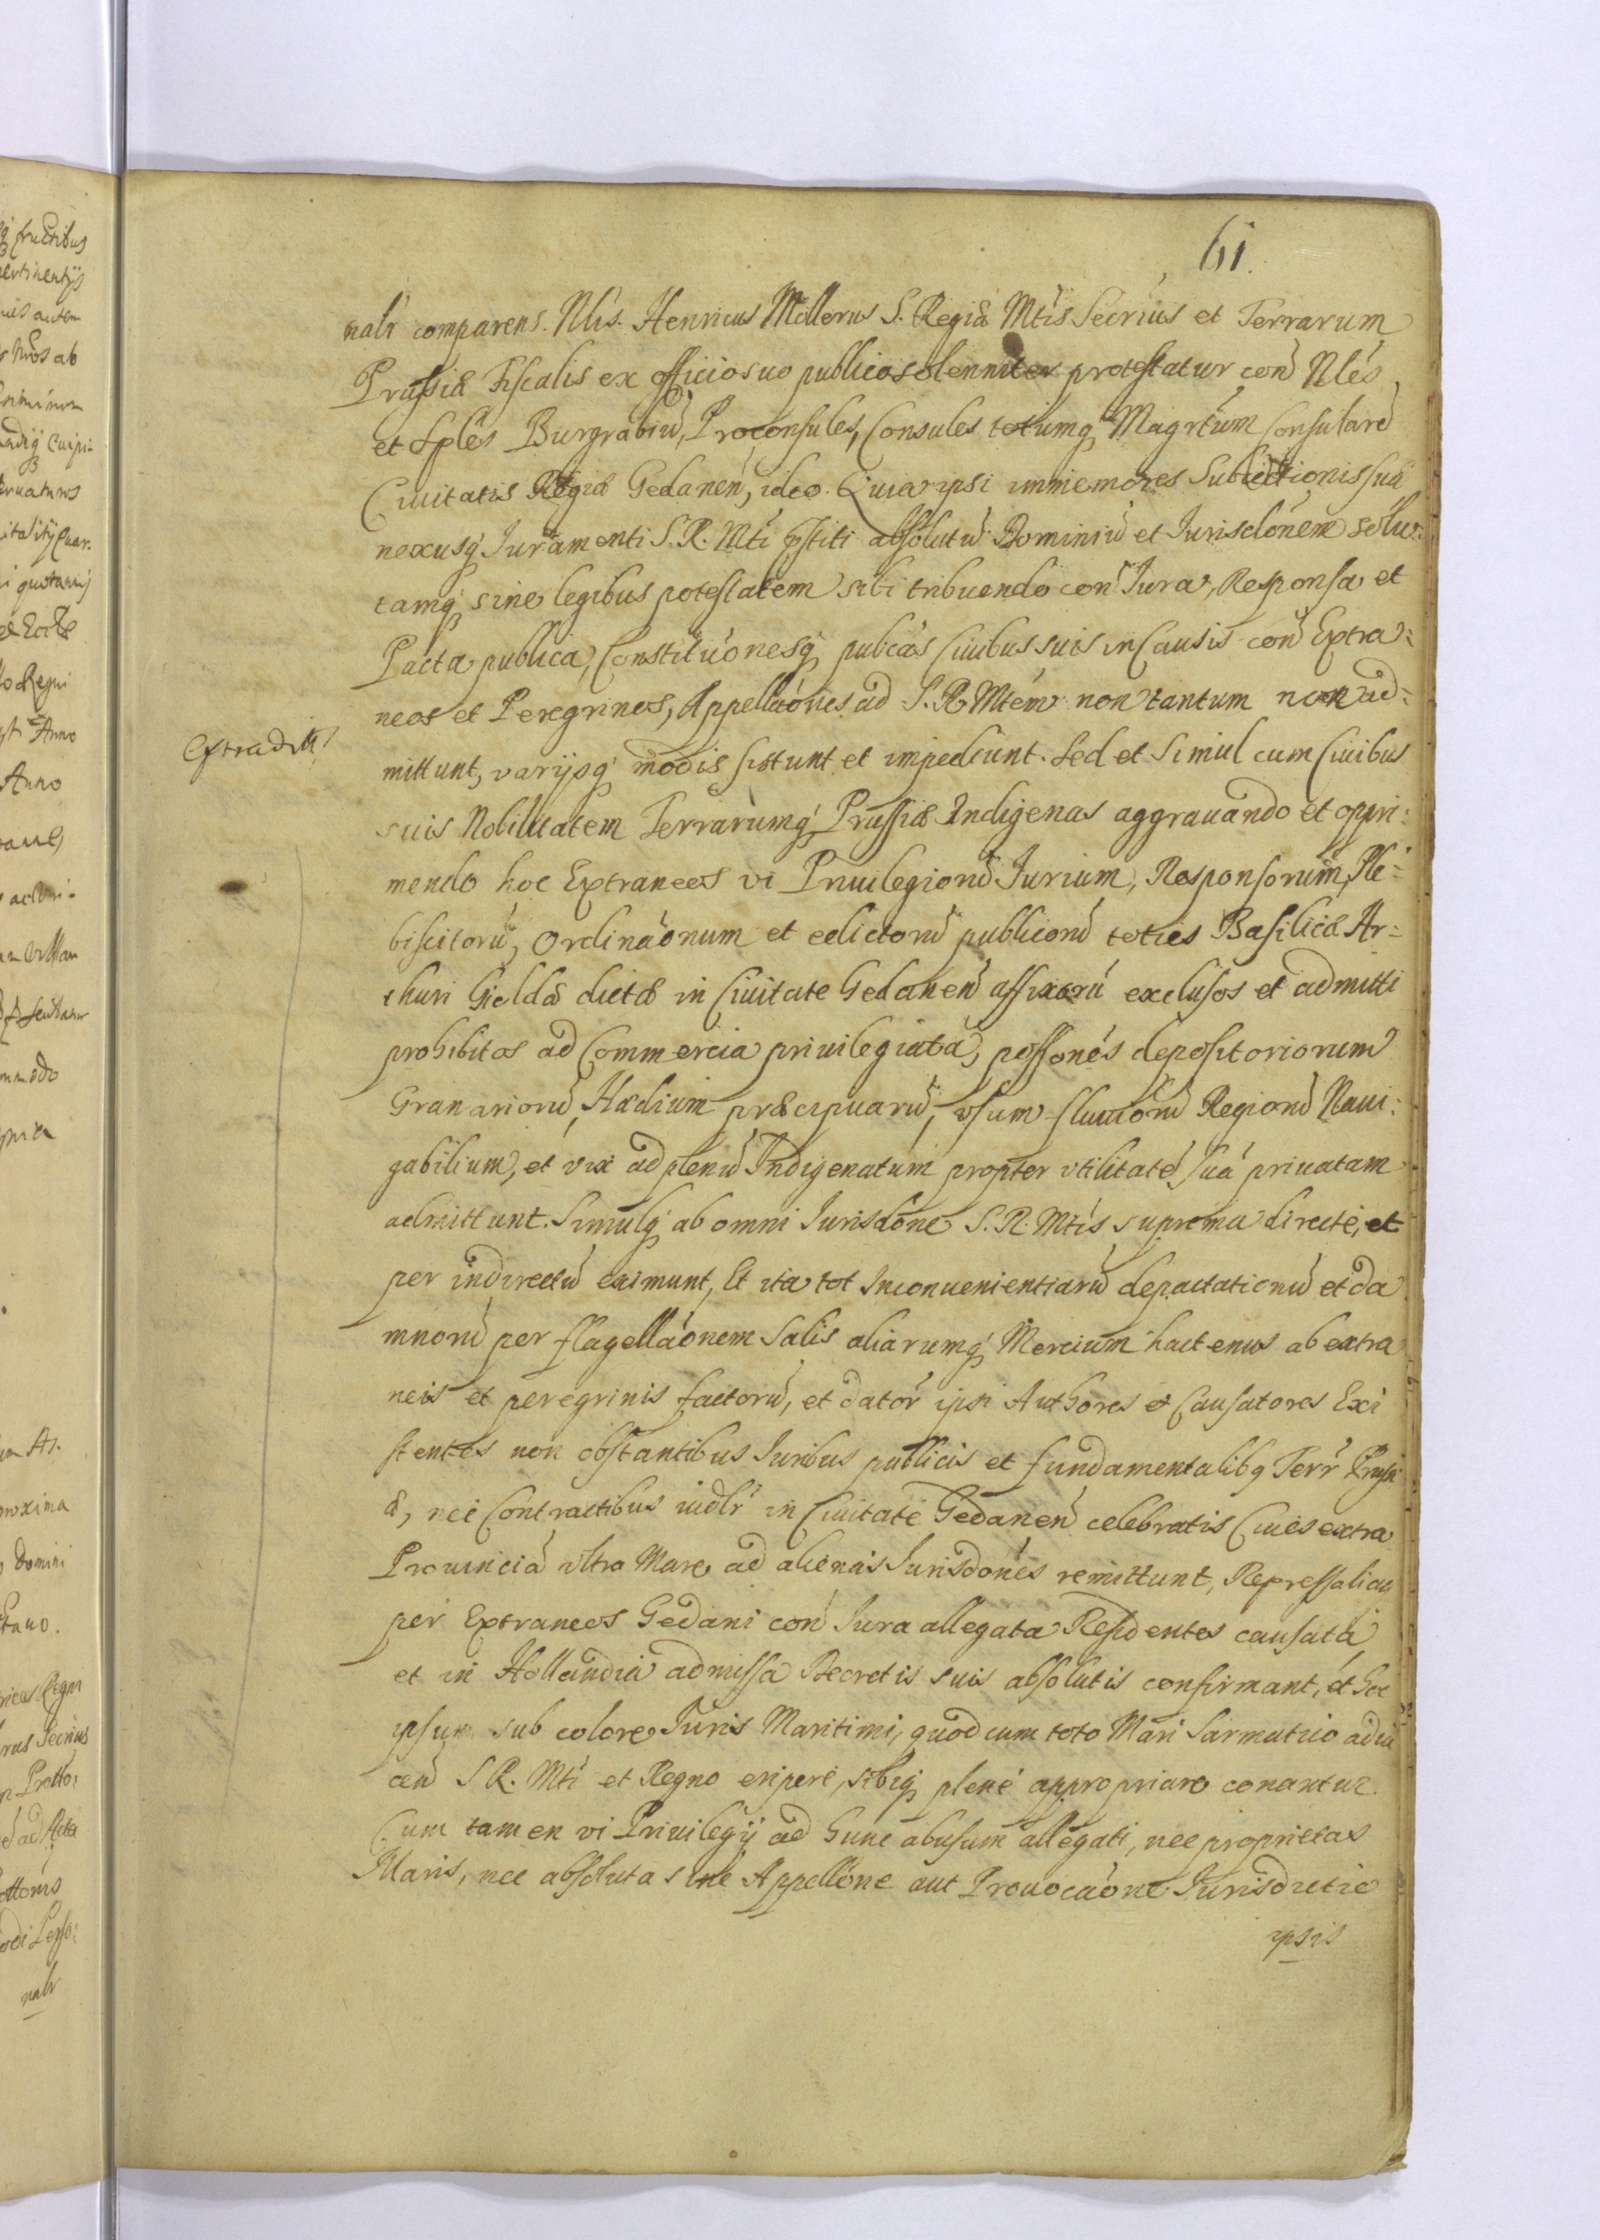 61.
nalr comparens. Nlis. Henricus Mollerus S. Regiæ Mtis Secrius et Terrarum
Prussiæ Fiscalis ex officio suo publico solenniter protestatur con Nles
et Sples Burgrabiu, Proconsules, Consules totumq Magrtum Consulare
Ciuitatis Regiæ Gedanen, ideo. Quia ipsi immemores Subiectionis suæ
nexusq Juramenti S. R. Mti pstiti absolutu Dominiu et Jurisdonem solu:
tamq sine legibus potestatem sibi tribuendo con Jura, Responsa et
Pacta publica, Constituonesq pubcas Ciuibus suis in Causis con Extra:
neos et Peregrinos, Appellaones ad S. R. Mtem non tantum non ad=
mittunt, varijsq modis sistunt et impediunt. Sed et Simul cum Ciuibus
suis Nobilitatem Terrarumq Prussiæ Indigenas aggrauando et oppri:
mendo hoc Extraneos vi Priuilegioru Jurium, Responsorum, Ple=
biscitoru, Ordinaonum et edictoru publicoru toties Basilicæ Ar=
thuri Gieldæ dictæ in Ciuitate Gedanen affixoru exclusos et admitti
prohibitos ad Commercia priuilegiata, possones depositoriorum
Granarioru, Ædium præcipuaru, vsum fluuioru Regioru Naui:
gabilium, et vix ad plenu Indigenatum propter vtilitate sua priuatam
admittunt. Simulq ab omni Jurisdone S. R. Mtis suprema directe, et
per indirectu eximunt, Et ita tot Inconuenientiaru depactationu et da
mnoru per flagellaonem Salis aliarumq Mercium hactenus ab extra
neis et peregrinis factoru, et dator ipsi Authores et Causatores Exi
stentes non obstantibus Juribus publicis et fundamentalibq Terr Prussi
æ, nec Contractibus iudlr in Ciuitate Gedanen celebratis Ciues extra
Prouincia vltra Mare ad alienas Jurisdones remittunt, Repressalias
per Extraneos Gedani con Jura allegata Residentes causata
et in Hollandia admissa Decretis suis absolutis confirmant, et hoc
ipsum sub colore Juris Maritimi, quod cum toto Mari Sarmatico adia
cen S R. Mti et Regno eripere, sibiq plene appropriare conantur.
Cum tamen vi Priuilegij ad hunc abusum allegati, nec proprietas
Maris, nec absoluta sine Appellone aut Prouocaone Jurisdictio
ipsis